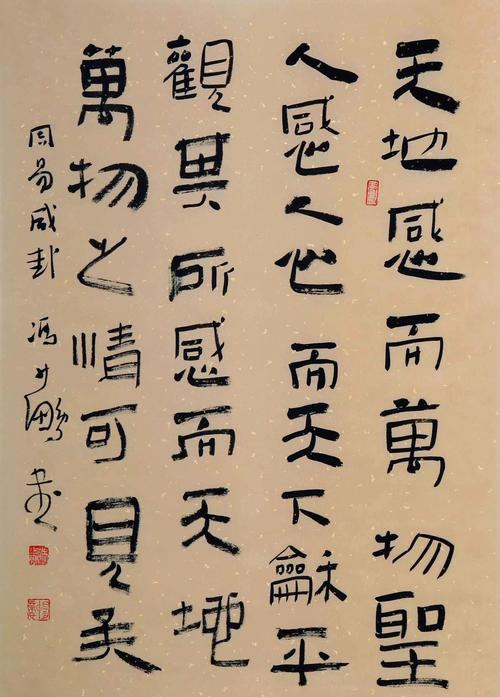 天地感而萬物聖
人感人心而天下龢平
觀其所感而天地
萬物之情可見矣
周易咸卦 馮少鵬書